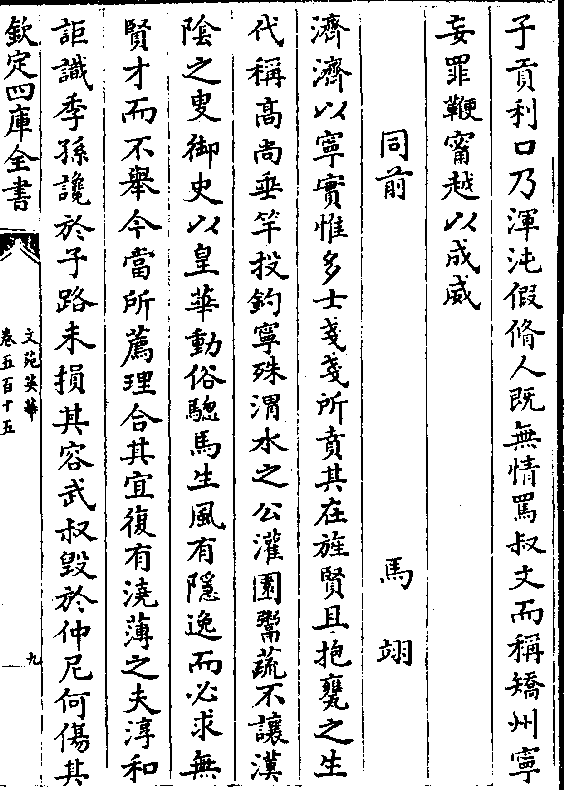 子貢利口乃渾沌假脩人既無情罵叔文而稱矯州寧
妄罪鞭甯越以成威
同前 馬翊
濟濟以寧實惟多士戔戔所賁其在旌賢且抱甕之生
代稱髙尚垂竿投釣寧殊渭水之公灌園鬻蔬不讓漢
隂之叟御史以皇華動俗驄馬生風有隱逸而必求無
賢才而不舉今當所薦理合其宜復有澆薄之夫淳和
詎識季孫讒於子路未損其容武叔毀於仲尼何傷其
欽定四庫全書
文苑英華
卷五百十五
九